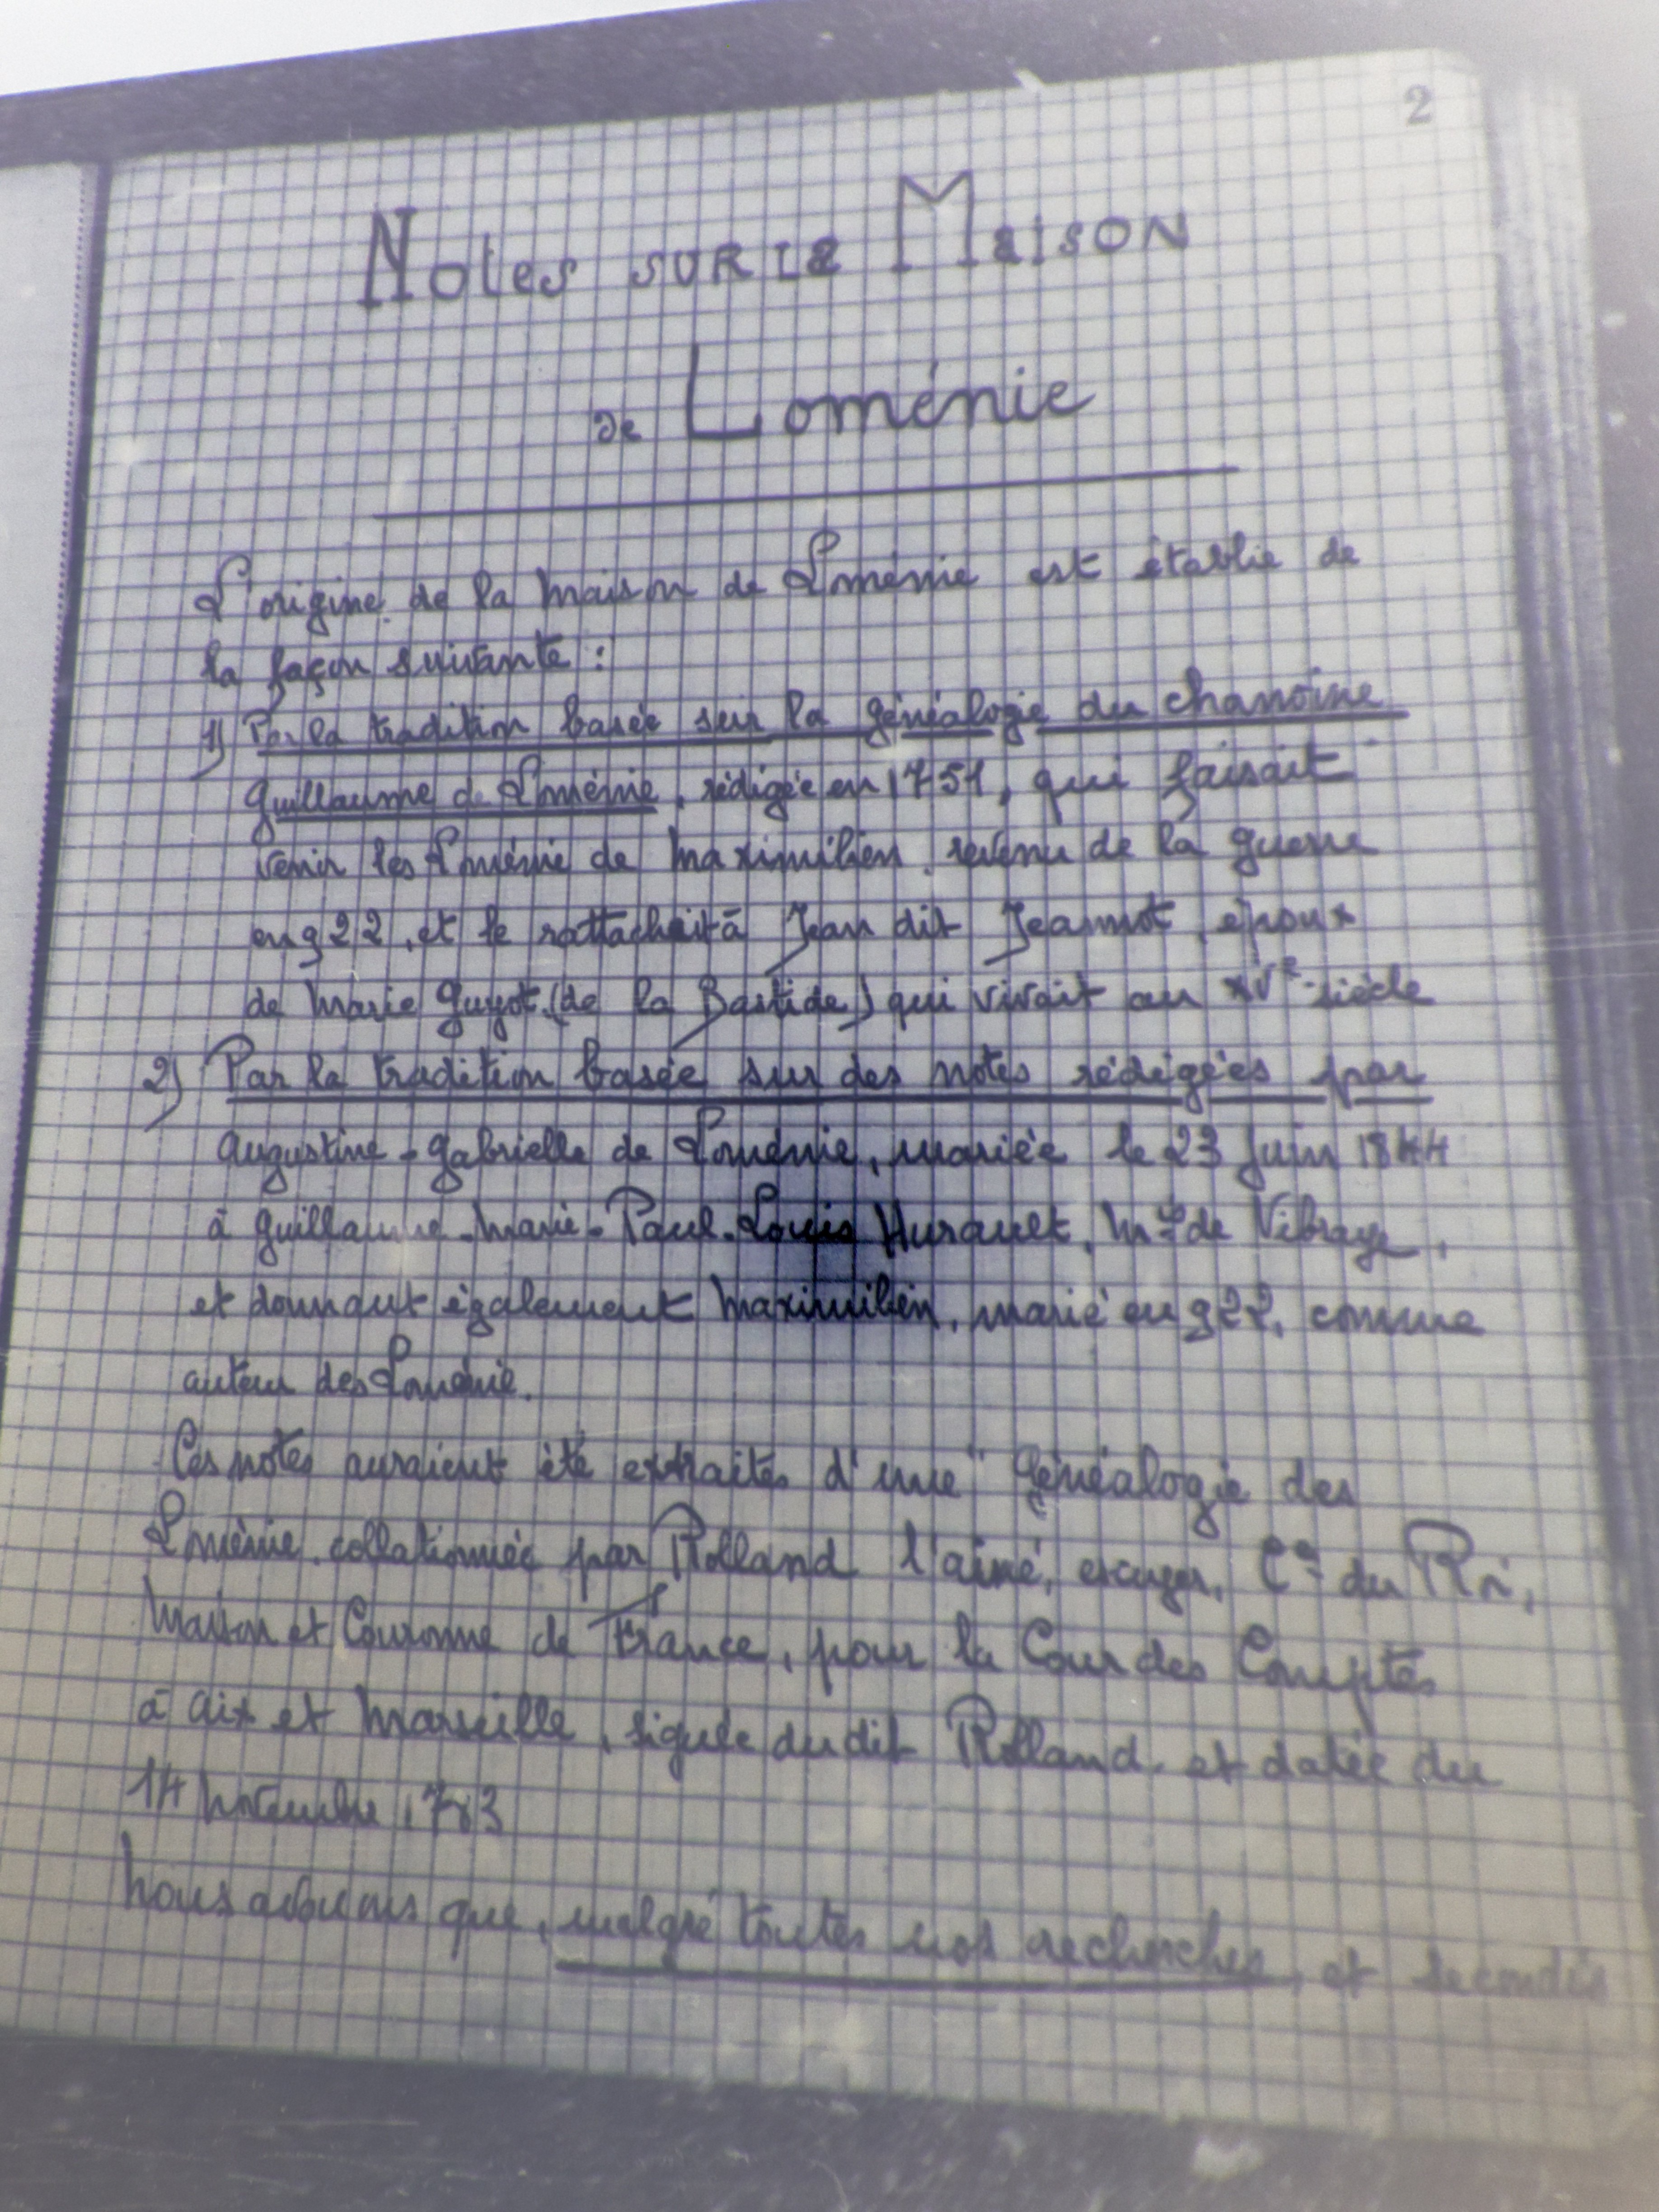 2
Notes sur la Maison
de Loménie
L'origine de la Maison de Loménie est établie de
la façon suivante :
1) Par la tradition basée sur la généalogie du chanoine
Guillaume de Loménie, rédigée en 1751, qui faisait
venir les Loménie de Maximilien, revenu de la guerre
en 922, et le rattachait à Jean dit Jeannot, époux
de Marie Guyot (de la Bastide) qui vivait au XVe siècle
2) Par la tradition basée sur des notes rédigées par
Augustine-Gabrielle de Loménie, mariée le 23 Juin 1844
à Guillaume-Marie-Paul-Louis Hurault, Mis de Vibraye,
et donnant également Maximilien, marié en 922, comme
auteur des Loménie.
Ces notes auraient été extraites d'une "Généalogie des
Loménie, collationnée par Rolland l'aîné, escuyer, Cer du Roi,
Maison et Couronne de France, pour la Cour des Comptes
à Aix et Marseille, signée du dit Rolland et datée du
14 Novembre 1783
Nous avouons que, malgré toutes nos recherches, et secondés